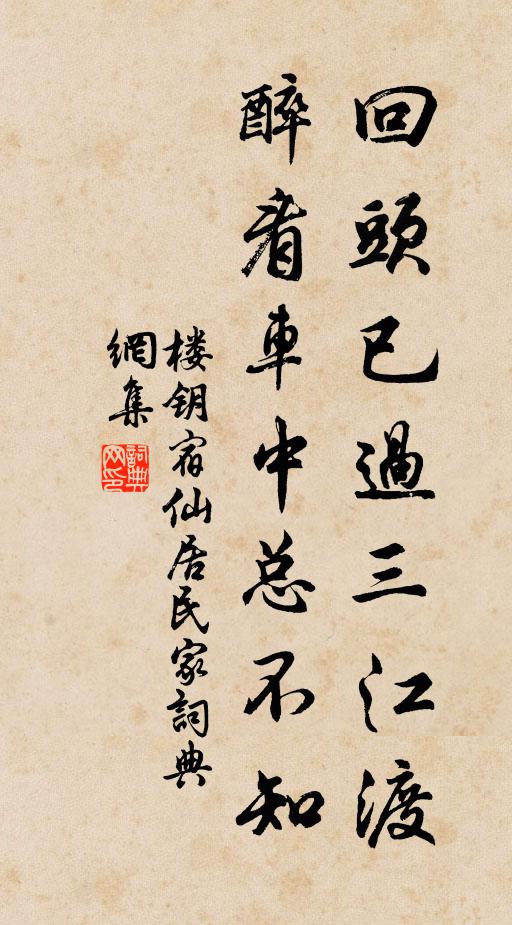 回頭已過三江渡
醉看車中总不知
楼钥宿仙居民家詞典
網集
詞典
网印